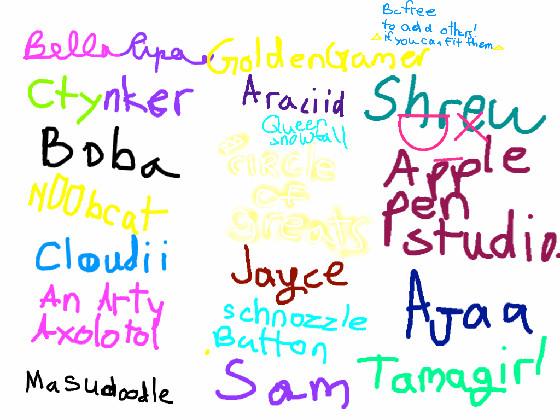 Bella Pupa
Ctynker
Boba
NOObcat
Cloudii
An Arty
Axolotol
Masudoodle
GoldenGamer
Araciid
Queen
snowfall
CIRCLE
OF
greats
Jayce
schnozzle
Button
Sam
Befree
to add others!
if you can fit them
Shrew
Apple
pen
studio.
Ajaa
Tamagirl